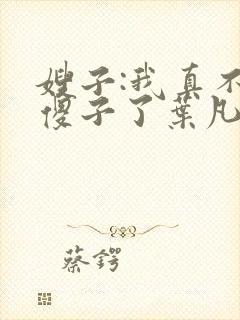 嫂子:我真不
傻子了葉凡
蔡鍔